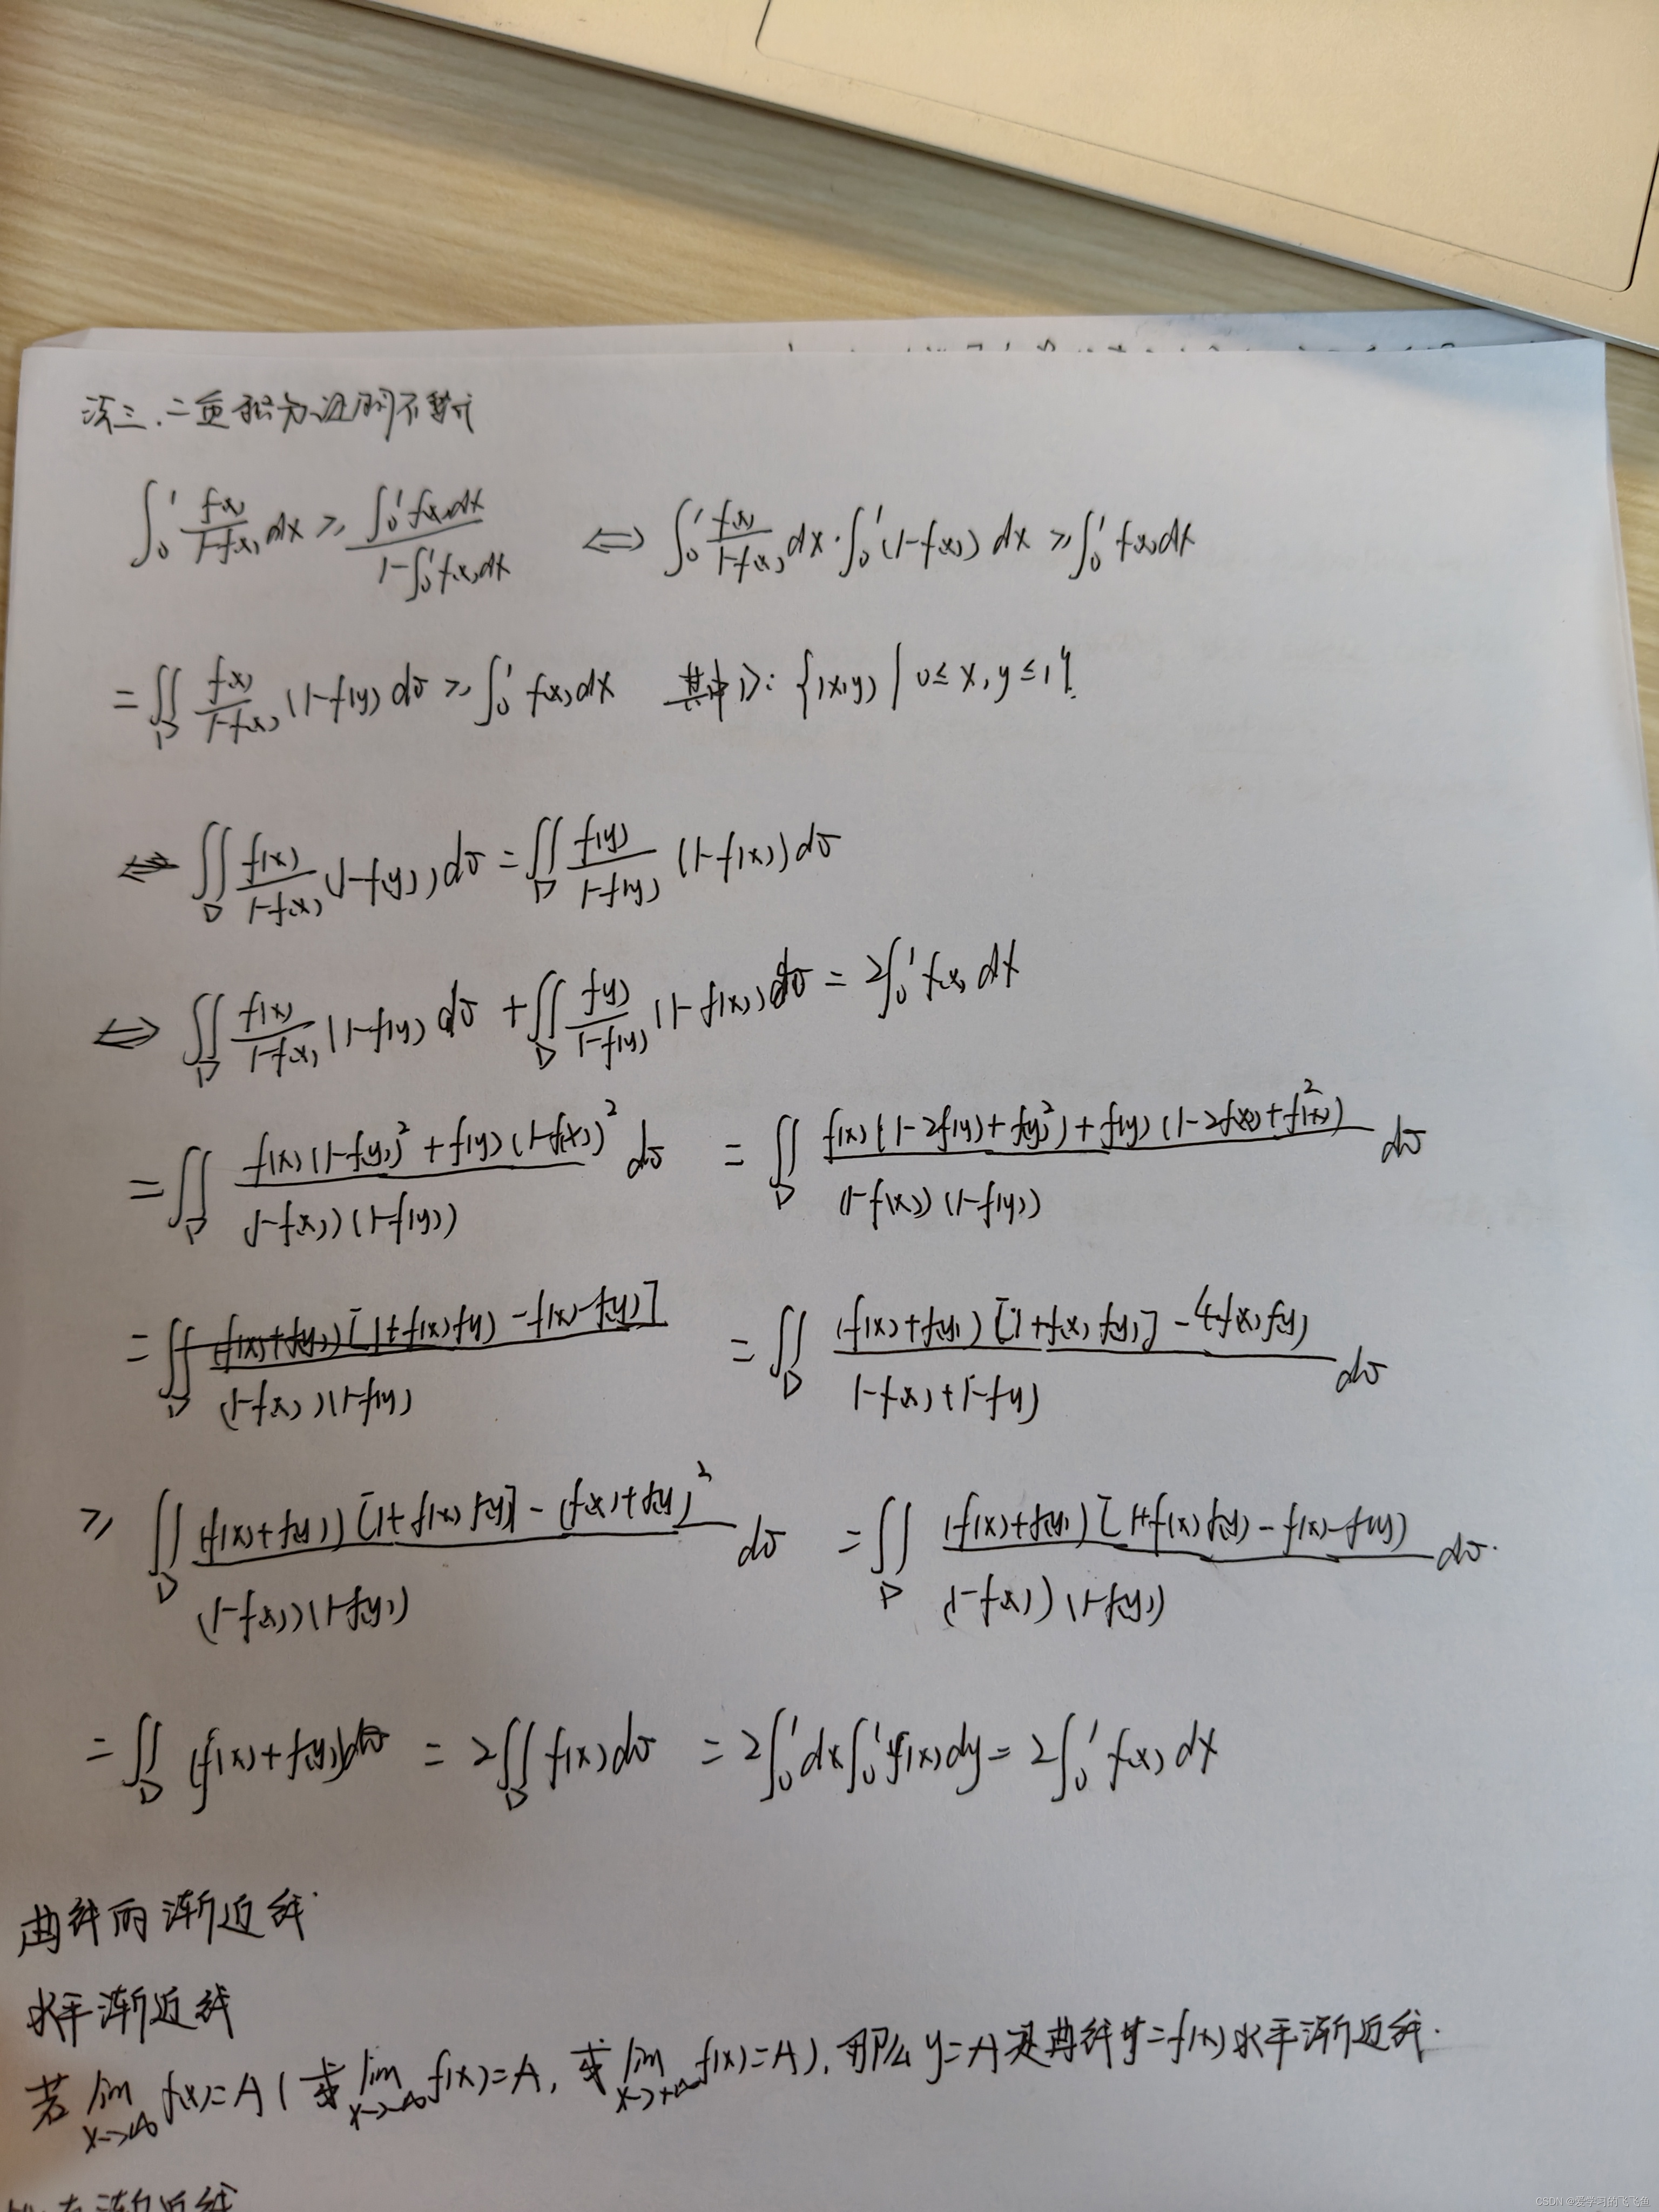 法三、二重积分证明不等式
∫₀¹ f(x)/(1-f(x)) dx ≥ ∫₀¹f(x)dx/(1-∫₀¹f(x)dx) ⇔ ∫₀¹ f(x)/(1-f(x)) dx·∫₀¹(1-f(x))dx ≥ ∫₀¹f(x)dx
= ∬_D f(x)/(1-f(x)) (1-f(y) dσ ≥ ∫₀¹ f(x)dx 其中D: {(x,y) | 0≤x,y≤1}.
⇔ ∬_D f(x)/(1-f(x)) (1-f(y))dσ = ∬_D f(y)/(1-f(y)) (1-f(x))dσ
⇔ ∬_D f(x)/(1-f(x)) (1-f(y) dσ + ∬_D f(y)/(1-f(y)) (1-f(x))dσ = 2∫₀¹ f(x) dx
= ∬_D [f(x)(1-f(y))² + f(y)(1-f(x))²]/[(1-f(x))(1-f(y))] dσ = ∬_D [f(x)(1-2f(y)+f(y)²)+f(y)(1-2f(x)+f(x)²)]/[(1-f(x))(1-f(y))] dσ
= ∬_D (f(x)+f(y))[1+f(x)f(y)-f(x)-f(y)]/[(1-f(x))(1-f(y)] = ∬_D {(f(x)+f(y))[1+f(x)f(y)]-4f(x)f(y)}/[1-f(x)+1-f(y)] dσ
≥ ∬_D {(f(x)+f(y))[1+f(x)f(y)]-(f(x)+f(y))²}/[(1-f(x))(1-f(y))] dσ = ∬_D (f(x)+f(y))[1+f(x)f(y)-f(x)-f(y))/[(1-f(x))(1-f(y))] dσ.
= ∬_D (f(x)+f(y))dσ = 2∬_D f(x)dσ = 2∫₀¹dx∫₀¹f(x)dy = 2∫₀¹ f(x) dx
曲线的渐近线.
水平渐近线
若 lim_{x→∞} f(x)=A (或 lim_{x→-∞} f(x)=A, 或 lim_{x→+∞} f(x)=A), 那么 y=A 是曲线 y=f(x) 水平渐近线.
渐近线
CSDN @爱学习的飞飞鱼